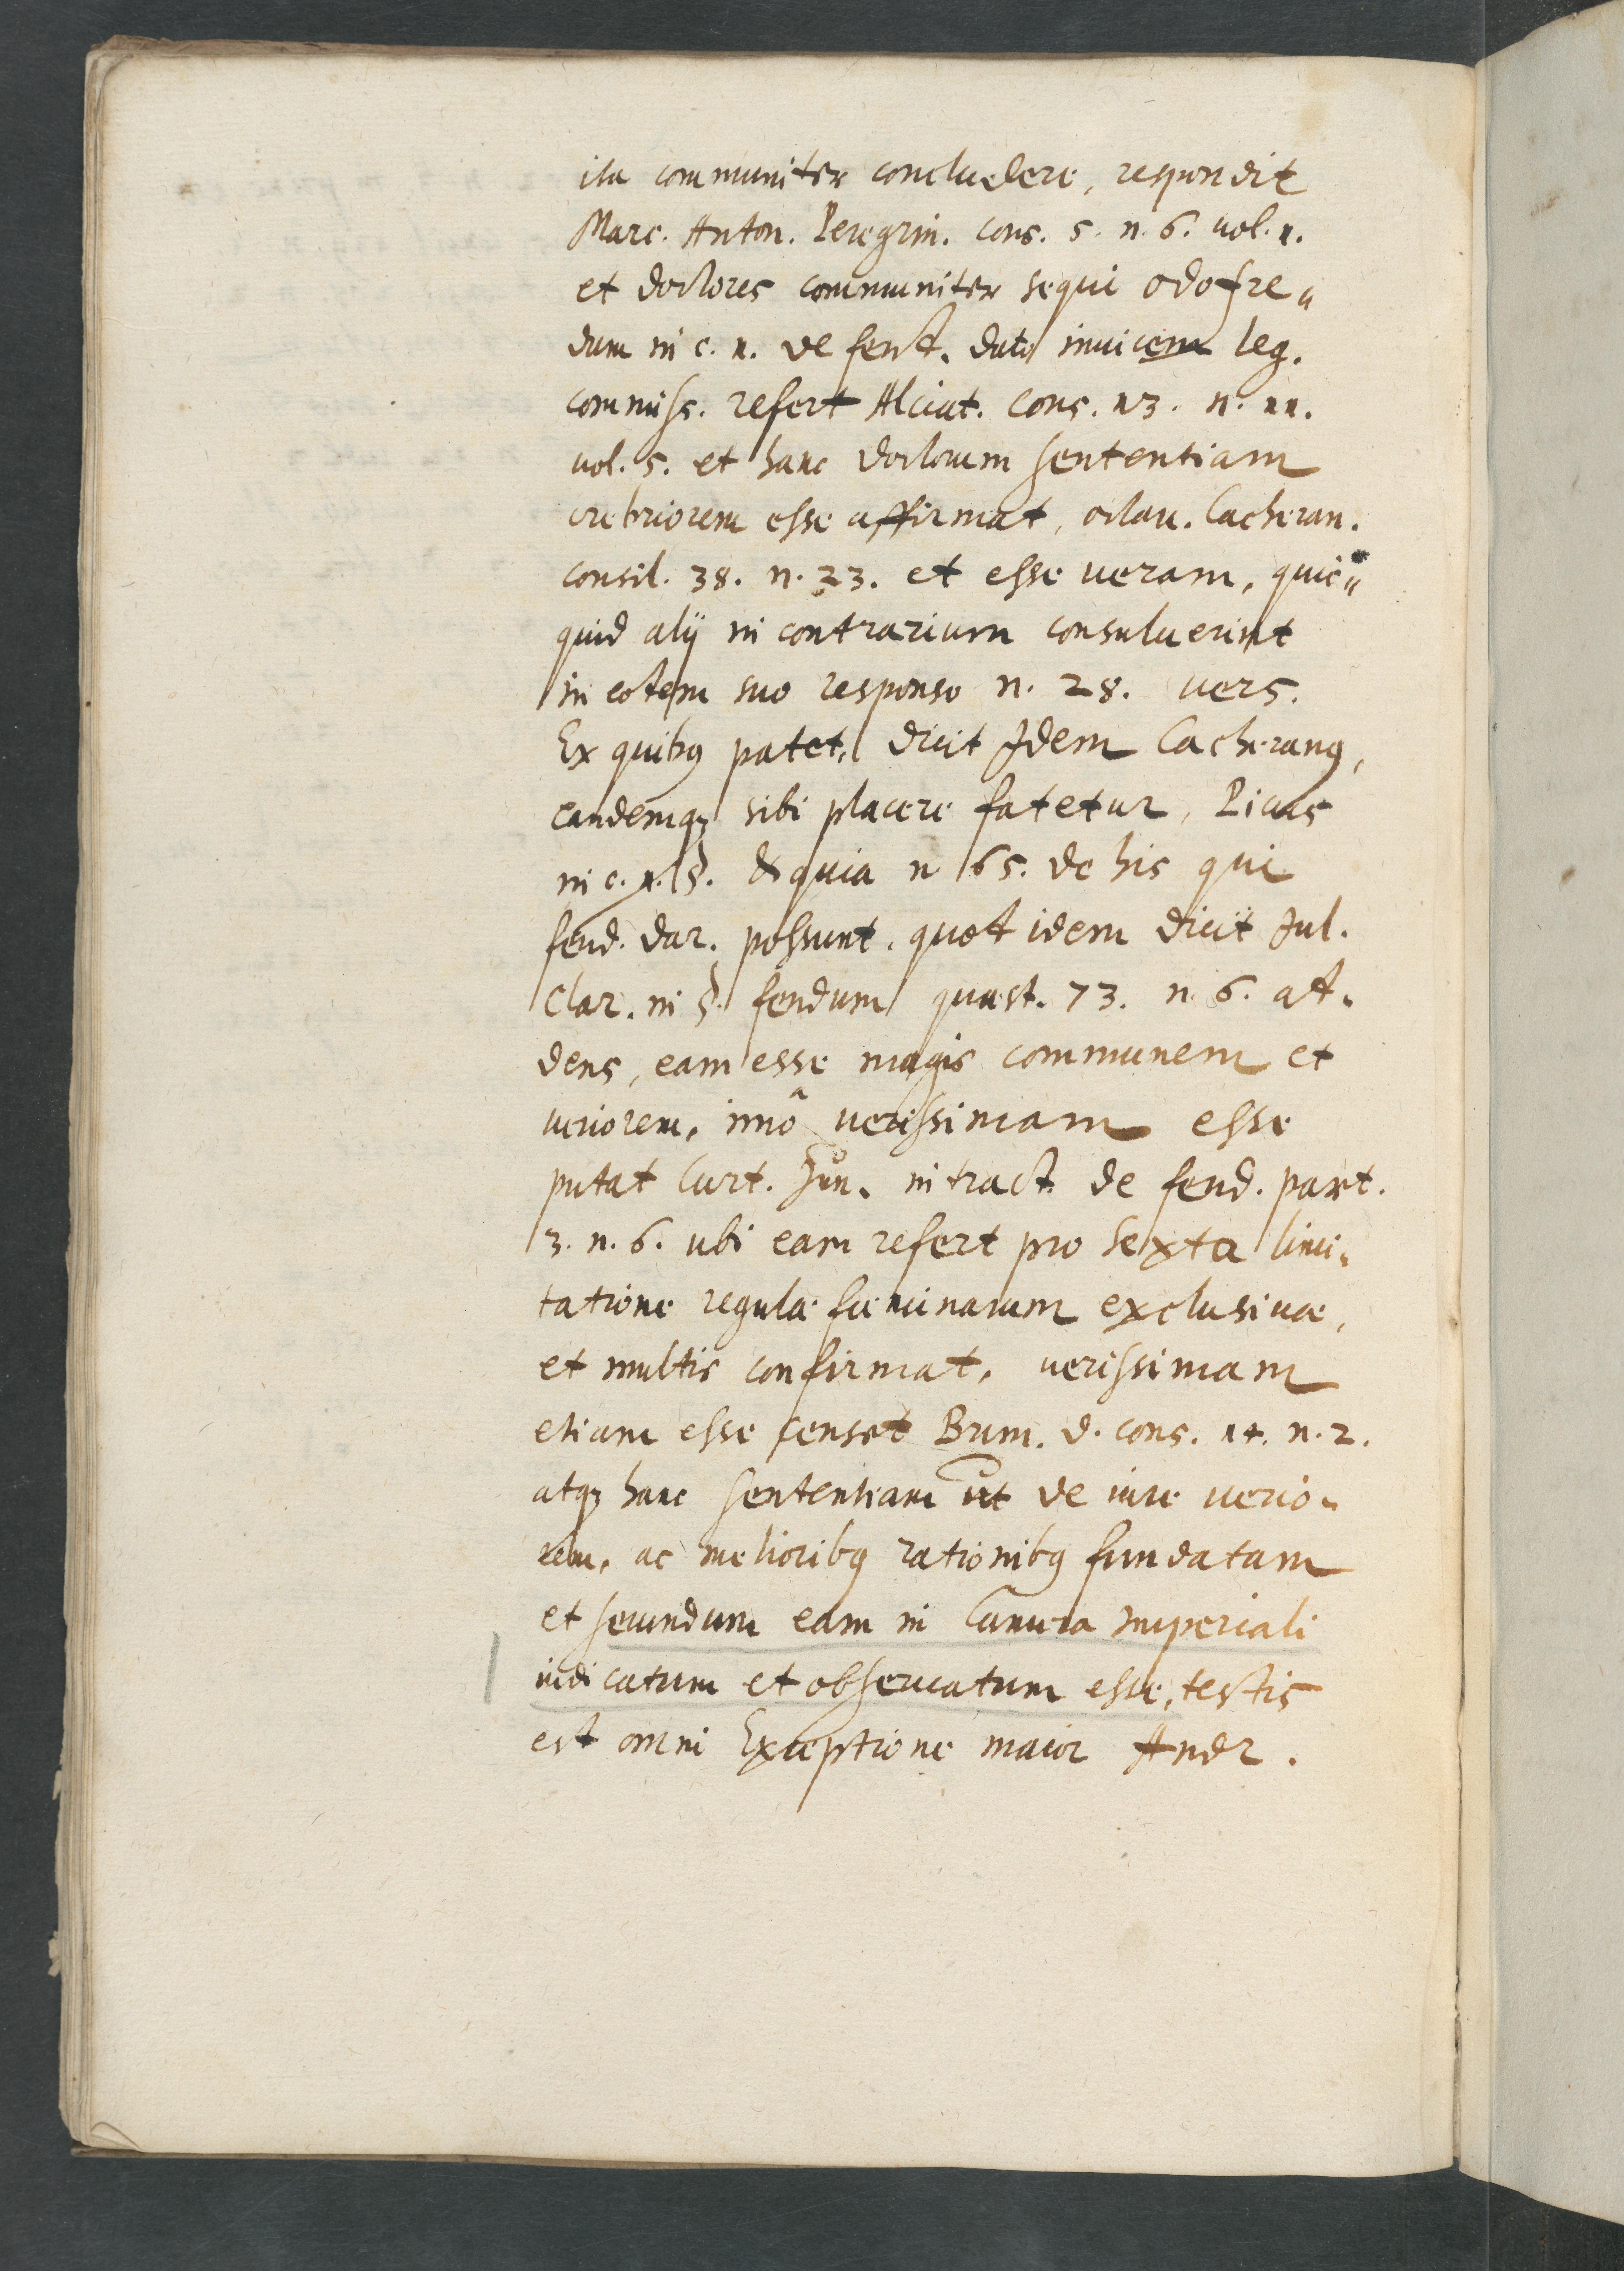 ita communiter concludere, respondit
Marc. Anton. Peregrin. cons. 5. n. 6. vol. 1.
et doctores communiter sequi Odofre„
dum in c. 1. de feud. dato invicem leg.
commiss. refert Alciat. Cons. 13. n. 11.
vol. 5. et hanc doctorum sententiam
crebriorem esse affirmat, octav. Cacheran.
consil. 38. n. 23. et esse veram, quic„
quid alij in contrarium consuluerint
in eodem suo responso n. 28. vers.
Ex quibꝰ patet, dicit Idem Cacheranꝰ,
eandemqꝫ sibi placere fatetur, Picus
in c. 1. §. & quia n 65. de his qui
feud. dar. possunt. quod idem dicit Jul.
Clar. in §. feudum quæst. 73. n. 6. ad„
dens, eam esse magis communem et
veriorem, imò verissimam esse
putat Curt. Jun. in tract. de feud. part.
3. n. 6. ubi eam refert pro sexta limi„
tatione regulæ fœminarum exclusivæ,
et multis confirmat, verissimam
etiam esse censet Brun. d. cons. 14. n. 2.
atqꝫ hanc sententiam ut de iure verio„
rem, ac melioribꝰ rationibꝰ fundatam
et secundum eam in Camera Imperiali
iudicatum et observatum esse, testis
est omni Exceptione maior Andr.